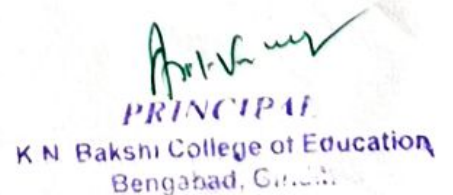 PRINCIPAL
K N Bakshi College of Education
Bengabad,